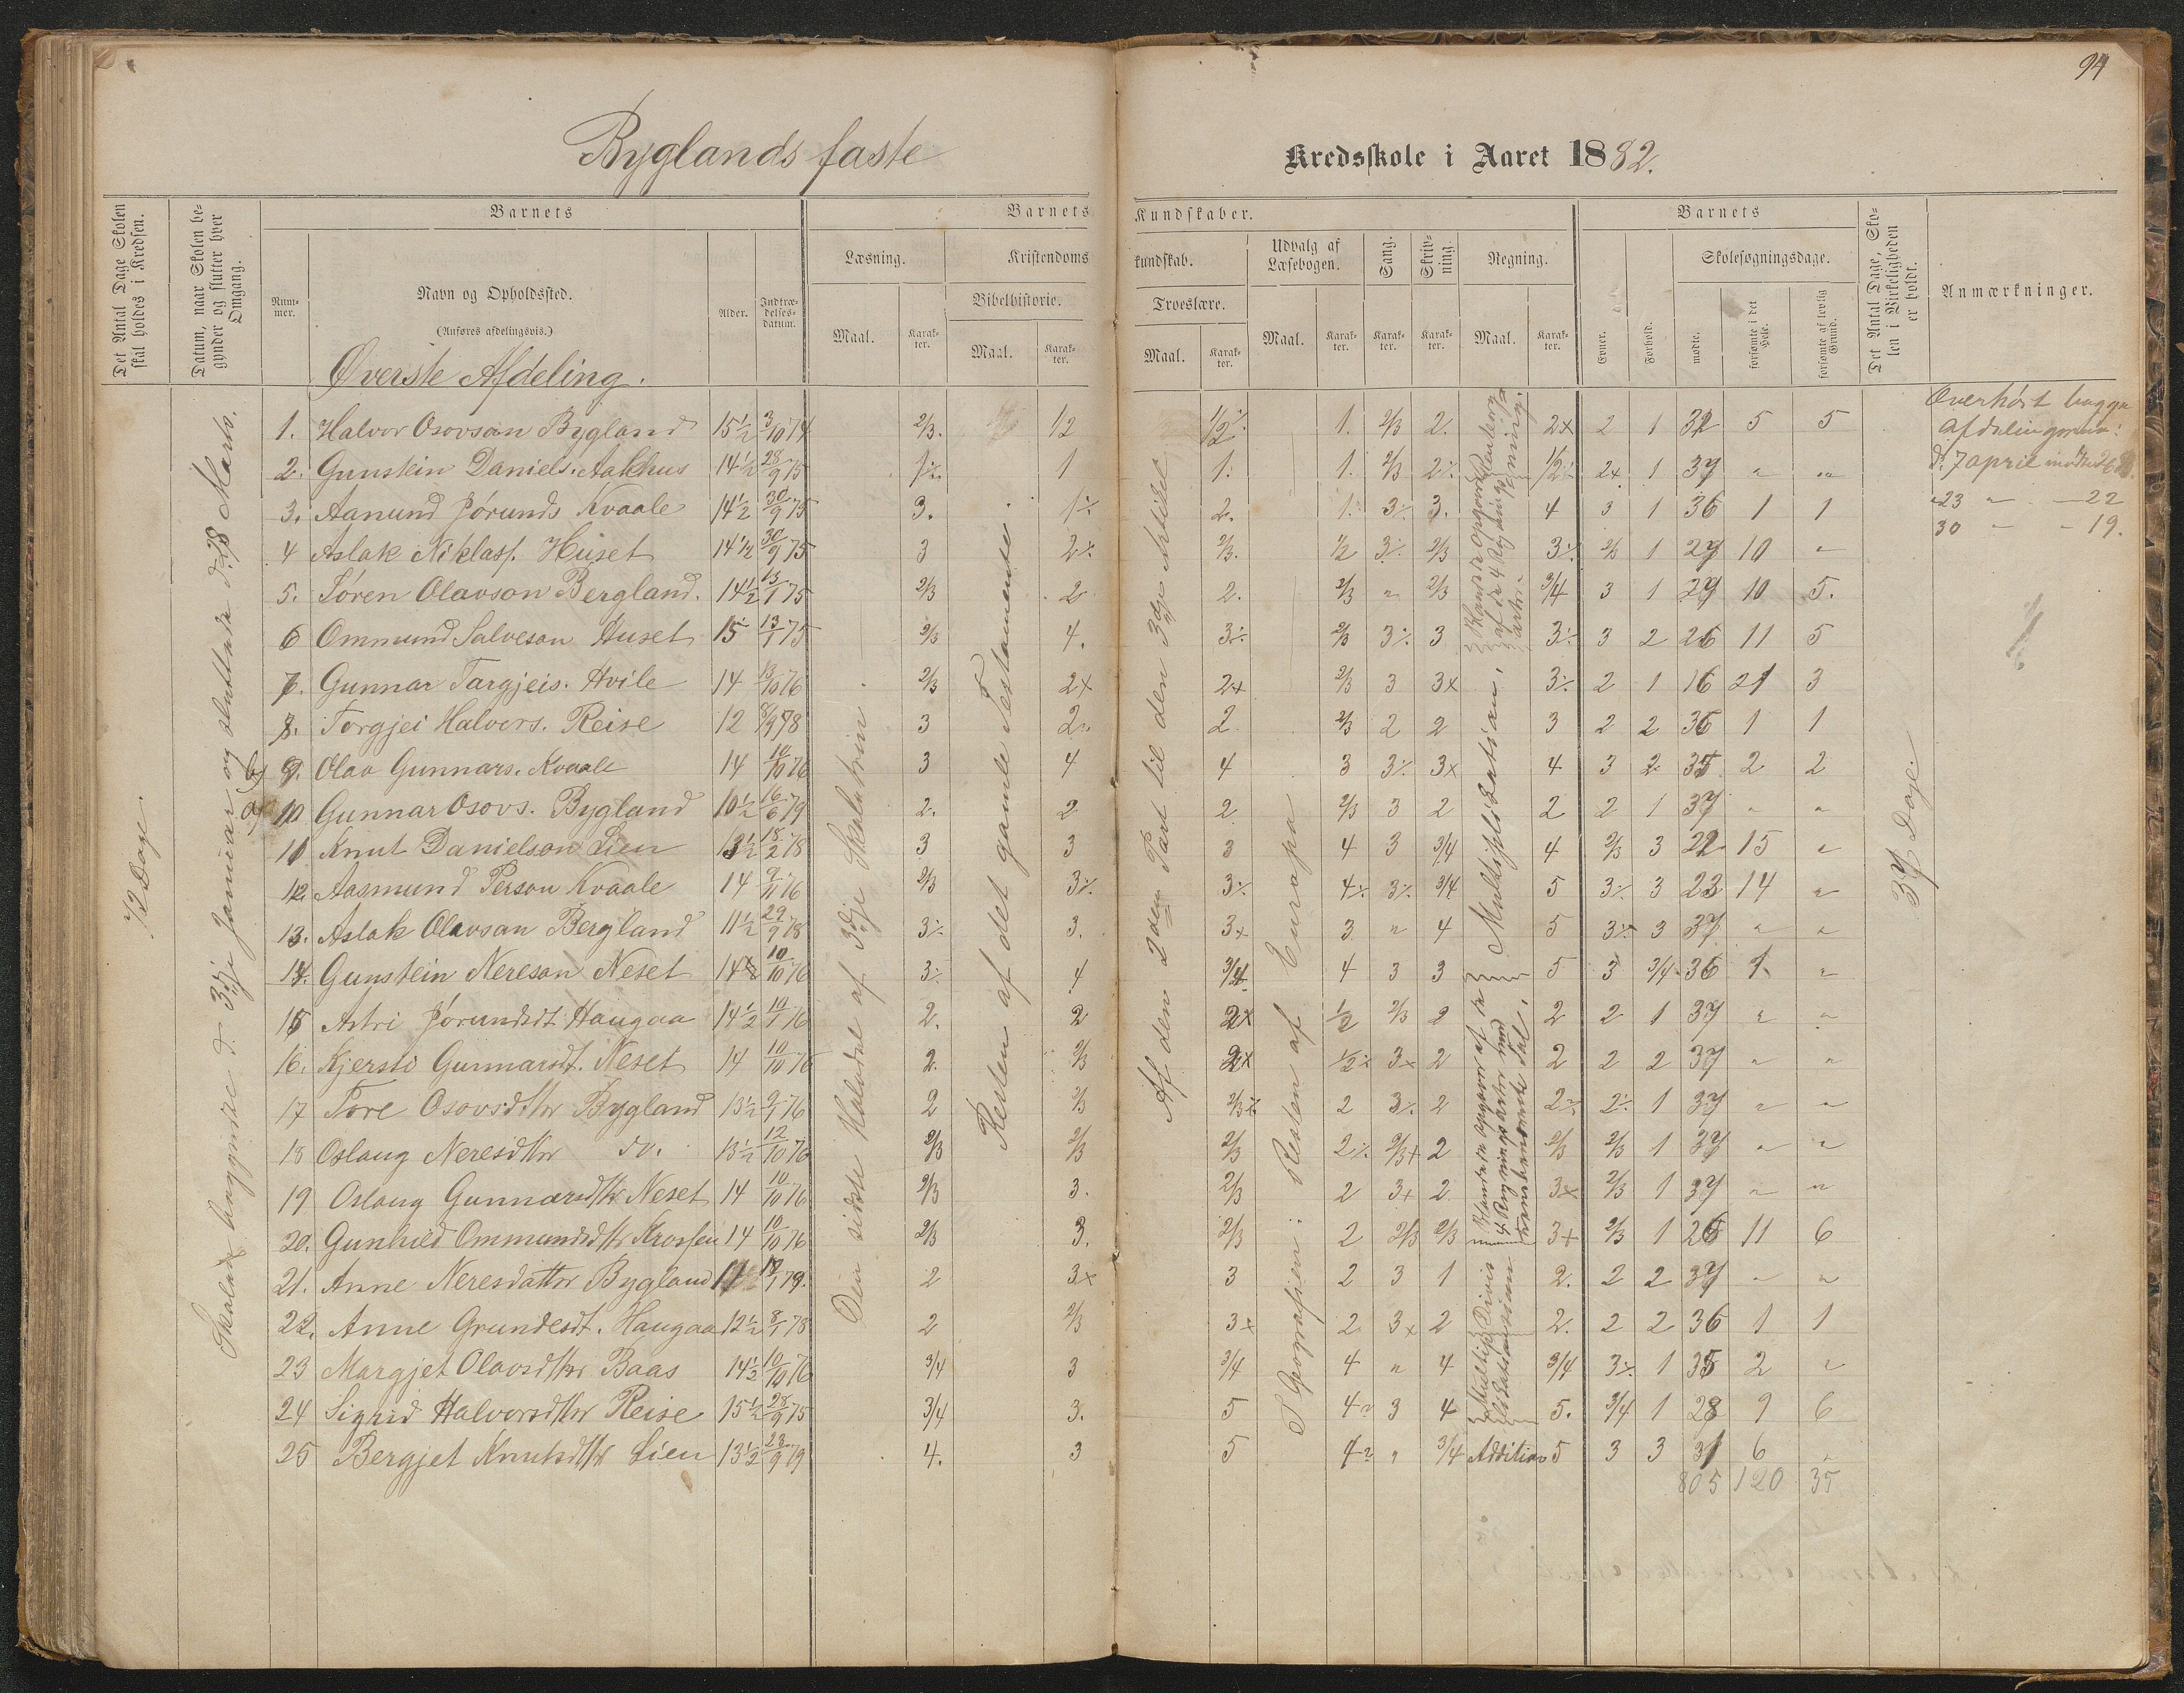 94
Byglands faste Kredsskole i Aaret 1882.
Det Antal Dage Skolen skal holdes i Kredsen.
Datum, naar Skolen begynder og slutter hver Omgang.
Barnets
Num-mer.
Navn og Opholdssted.
(Anføres afdelingsvis.)
Alder.
Indtræ-delses-datum.
Barnets Kundskaber.
Læsning.
Maal.
Karak-ter.
Kristendoms kundskab.
Bibelhistorie.
Maal.
Karak-ter.
Troeslære.
Maal.
Karak-ter.
Udvalg af Læsebogen.
Maal.
Karak-ter.
Sang.
Karak-ter.
Skriv-ning.
Karak-ter.
Regning.
Maal.
Karak-ter.
Barnets
Evner.
Forhold.
Skolesøgningsdage.
mødte.
forsømte i det Hele.
forsømte af lovlig Grund.
Det Antal Dage, Skolen i Virkeligheden er holdt.
Anmærkninger.
Øverste Afdeling.
72 Dage.
Skolen begyndte d. 3dje Januar og sluttede d. 28 Marts.
Den sidste Halvdel af 3dje Skoletrin.
Resten af det gamle Testamente.
Af den 2den Part til den 3dje Artikel
Geografien: Resten af Europa
Multiplikation,
37 Dage.
1. Halvor Osovson Bygland 15½ 3/10 74 2/3. 1/2 1/2 1. 2/3 2. 2x 2 1 32 5 5
2. Gunstein Daniels. Aakhus 14½ 28/9 75 1 1 1. 1. 2/3 2 1/2 2x 1 37 " "
3. Aanund Jørunds Kvaale 14½ 30/9 75 3. 1 2. 1. 3 3. 4 3 1 36 1 1
4 Aslak Niklass. Huset 14½ 30/9 75 3 2 2/3. 1/2 3 2/3 3 2/3 1 27 10 "
5. Søren Olavson Bergland. 14½ 13/1 75 2/3 2 2. 2/3 " 2/3 3/4 3 1 27 10 5.
6 Ommund Salveson Huset 15 13/1 75 2/3 4. 3 2/3 3 3 3 3 2 26 11 5
7. Gunnar Targjeis. Hvile 14 13/10 76 2/3 2x 2x 2/3 3 3x 3 2 1 16 21 3
8. Torgjei Halvors. Reise 12 8/9 78 3 2 2 2/3 2 2 3 2 2 36 1 1
b) 9. Olav Gunnars. Kvaale 14 10/10 76 3 4 4 3 3 3x 4 3 2 35 2 2
a) 10 Gunnar Osovs. Bygland 10½ 16/6 79 2. 2 2 2/3 3 2 2 2 1 37 " "
11 Knut Danielson Lien 13½ 18/2 78 3 3 3 4 3 3/4 4 2/3 3 22 15 "
12. Aasmund Person Kvaale 14 9/11 76 2/3 3 3 4 3 3/4 5 3 3 23 14 "
13. Aslak Olavson Bergland 11½ 29/9 78 3 3. 3x 3 " 4 5 3 3 37 " "
14. Gunstein Nereson Neset 14 10/10 76 3 4 3/4 4 3 3 5 3 3/4 36 1 "
15 Astri Jørundsdt Haugaa 14½ 10/1 76 2. 2 2x 1/2 2/3 2 2 2 1 37 " "
16. Kjersti Gunnarsdt. Neset 14 10/10 76 2. 2/3 2x 1/2 3x 2 2 2 2 37 " "
17 Tore Osovsdttr Bygland 13½ 9/1 76 2 2/3 2/3 2 3 2 2 2 1 37 " "
18 Oslaug Neresdttr do. 13½ 12/10 76 2/3 2/3 2/3 2 2/3+ 2 2/3 2/3 1 37 " "
19 Oslaug Gunnarsdttr Neset 14 10/10 76 2/3 3. 2/3 2 3+ 2 3x 2/3 1 37 " "
20. Gunhild Ommundsdttr Krossen 14 10/10 76 2/3 3. 2/3 2 2/3 2/3 3+ 2/3 1 26 11 6
21. Anne Neresdattr Bygland 11 79. 2 3x 3 2 3 1 2. 2 2 37 " "
22. Anne Grundesdt. Haugaa 12½ 8/1 78 2 2/3 3x 2 3x 2 2. 2 2 36 1 1
23 Margjet Olavsdttr Baas 14½ 10/10 76 3/4 3 3/4 4 " 4 3/4 3 1 35 2 "
24 Sigrid Halvorsdttr Reise 15½ 28/9 75 3/4 3. 5 4 3 4 5. 3/4 1 28 9 6
25 Bergjet Knutsdttr Lien 13½ 23/9 79 4. 3 5 4 " 3/4 Addition 5 3 3 31 6 "
805 120 35
Overhørt begge
afdelingerne:
d. 7 april mødte
23 " — 22
30 - - 19.